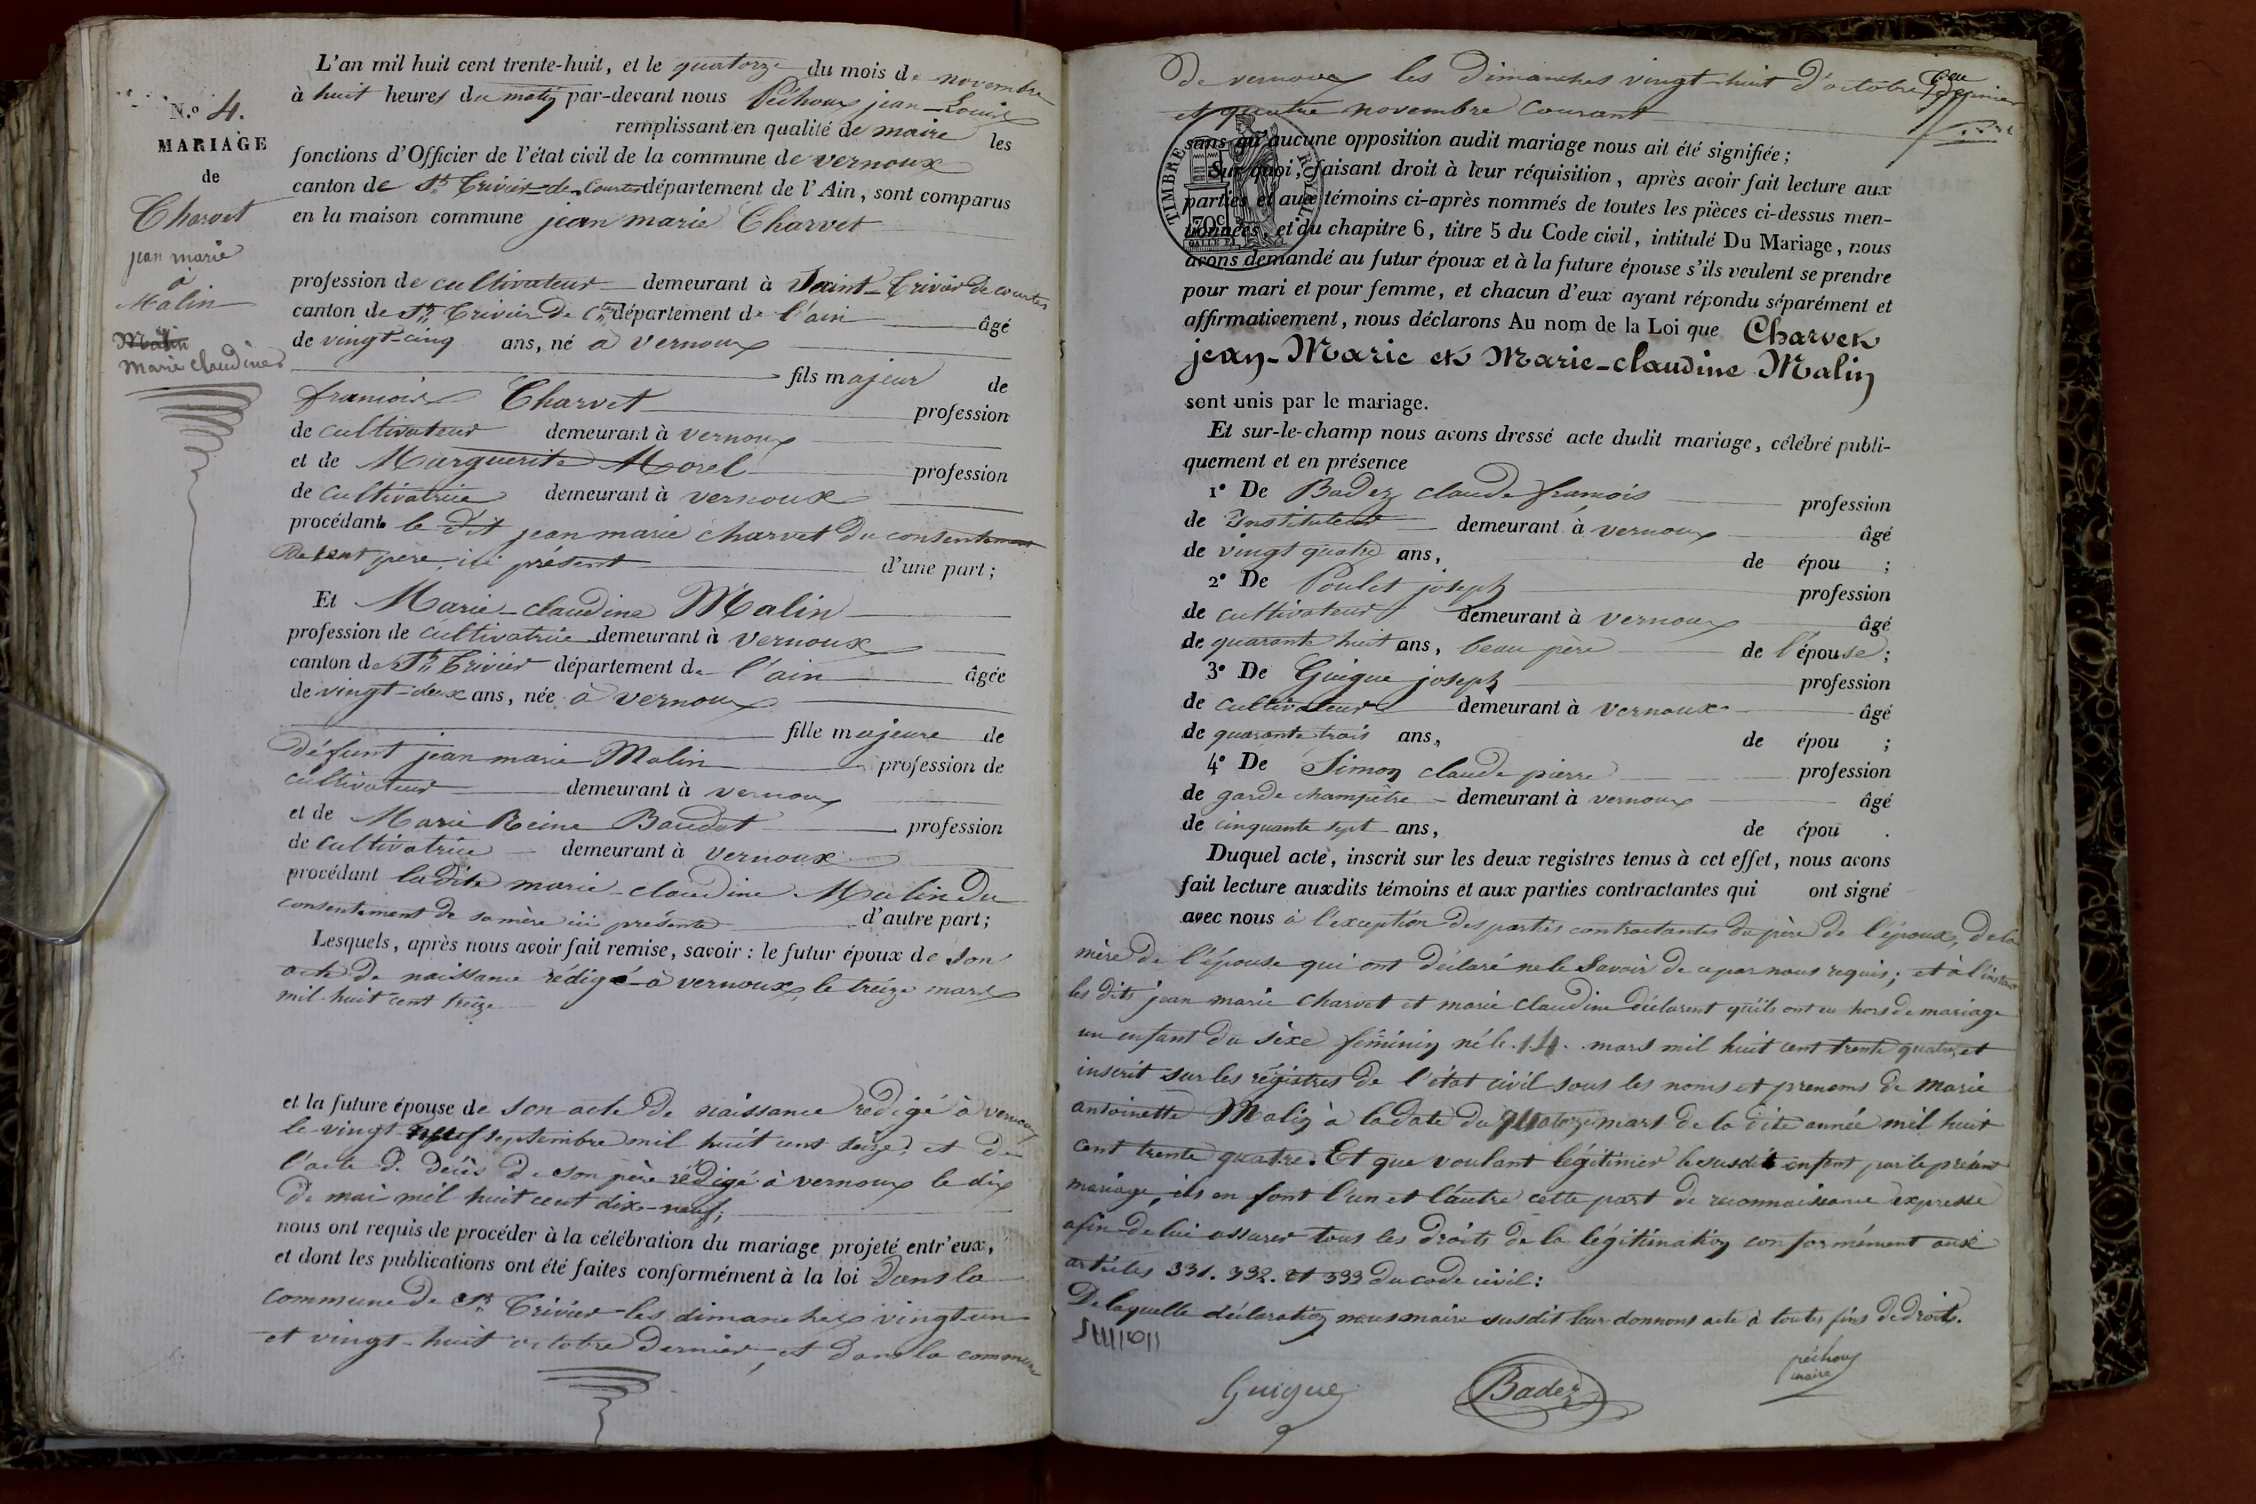 L'an mil huit cent trente-huit, et le quatorze du mois de novembre
à huit heures du matin par-devant nous Péchoux jean-Louis
remplissant en qualité de maire les
fonctions d'Officier de l'état civil de la commune de vernoux
canton de St. Trivier-de-Courtes département de l'Ain, sont comparus
en la maison commune jean marie Charvet
N.o 4.
MARIAGE
de
Charvet
jean marie
à
Malin
Malin
Marie claudine
profession de cultivateur demeurant à Saint-Trivier de courtes
canton de St. Trivier de Ctes département de l'ain âgé
de vingt-cinq ans, né à vernoux
fils majeur de
francois Charvet profession
de cultivateur demeurant à vernoux
et de Marguerite Morel profession
de cultivatrice demeurant à vernoux
procédant le dit jean marie charvet du consentement
de sont père, ici présent d'une part;
Et Marie-claudine Malin
profession de cultivatrice demeurant à vernoux
canton de St. Trivier département de l'ain âgée
de vingt-deux ans, née à vernoux
fille majeure de
défunt jean marie Malin profession de
cultivateur demeurant à vernoux
et de Marie Reine Baudet profession
de cultivatrice demeurant à vernoux
procédant ladite marie-claudine Malin du
consentement de sa mère ici présente d'autre part;
Lesquels, après nous avoir fait remise, savoir: le futur époux de son
acte de naissance rédigé à vernoux, le treize mars
mil huit cent treize
et la future épouse de son acte de naissance redigé à vernoux
le vingt-neuf septembre mil huit cent seize, et de
l'acte de décès de son père rédigé à vernoux le dix
de mai mil huit cent dix-neuf;
nous ont requis de procéder à la célébration du mariage projeté entr'eux,
et dont les publications ont été faites conformément à la loi dans la
commune de St. Trivier les dimanches vingt un
et vingt-huit octobre dernier, et dans la commune
de vernoux les dimanches vingt-huit d'octobre dernier
et quatre novembre courant
sans qu'aucune opposition audit mariage nous ait été signifiée;
TIMBRE ROYAL
70c
Sur quoi, faisant droit à leur réquisition, après avoir fait lecture aux
parties et aux témoins ci-après nommés de toutes les pièces ci-dessus men-
tionnées, et du chapitre 6, titre 5 du Code civil, intitulé Du Mariage, nous
avons demandé au futur époux et à la future épouse s'ils veulent se prendre
pour mari et pour femme, et chacun d'eux ayant répondu séparément et
affirmativement, nous déclarons Au nom de la Loi que Charvet
jean-Marie et Marie-claudine Malin
sont unis par le mariage.
Et sur-le-champ nous avons dressé acte dudit mariage, célébré publi-
quement et en présence
1º De Badez claude françois profession
de Instituteur demeurant à vernoux âgé
de vingt quatre ans, de épou ;
2º De Poulet joseph profession
de cultivateur demeurant à vernoux âgé
de quarante huit ans, beau père de l'épouse;
3º De Guigue joseph profession
de cultivateur demeurant à vernoux âgé
de quarante trois ans, de épou ;
4º De Simon claude pierre profession
de garde champêtre demeurant à vernoux âgé
de cinquante sept ans, de épou .
Duquel acte, inscrit sur les deux registres tenus à cet effet, nous avons
fait lecture auxdits témoins et aux parties contractantes qui ont signé
avec nous à l'exception des parties contractantes du père de l'époux, de la
mère de l'épouse qui ont déclaré ne le savoir de ce par nous requis; et à l'instant
les dits jean marie charvet et marie claudine déclarent qu'ils ont eu hors de mariage
un enfant du sèxe féminin né le .14. mars mil huit cent trente quatre et
inscrit sur les régistres de l'état civil sous les noms et prenoms de Marie
antoinette Malin à la date du quatorze mars de la dite année mil huit
cent trente quatre. Et que voulant légitimer le susdit enfant par le présent
mariage, ils en font l'un et l'autre cette part de reconnaissance expresse
afin de lui assurer tous les droits de la légitimation conformément aux
articles 331. 332. et 333 du code civil:
De laquelle déclaration nous maire susdit leur donnons acte à toutes fins de droits.
Guigue
Badez
péchoux
maire